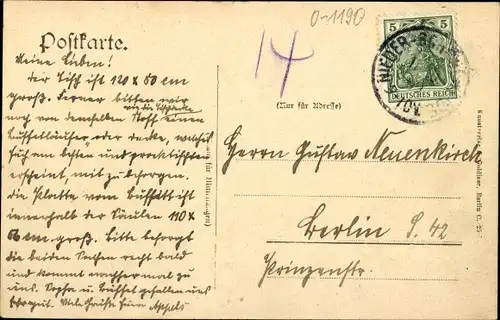 0-1190
Postkarte.
14
5 5
DEUTSCHES REICH
NIEDER-
(Nur für Adresse)
für Mitteilungen)
Meine Lieben!
Der Tisch ist 120 x 80 cm
groß. Ferner bitten wir
für die Schänke
noch von demselben Stoff einen
Buffetläufer oder Decke, welches
Euch am besten und praktischsten
erscheint, mit zu besorgen.
Die Platte vom Buffett ist
innerhalb der Säulen 110 x
60 cm. groß. Bitte besorgt
die beiden Sachen recht bald
und kommt nachher mal zu
uns. Sopha u. Büffet gefallen uns
sehr gut. Viele Grüße Eure
Herrn Gustav Neuenkirch
Berlin S. 42
Prinzenstr.
Berlin C. 25